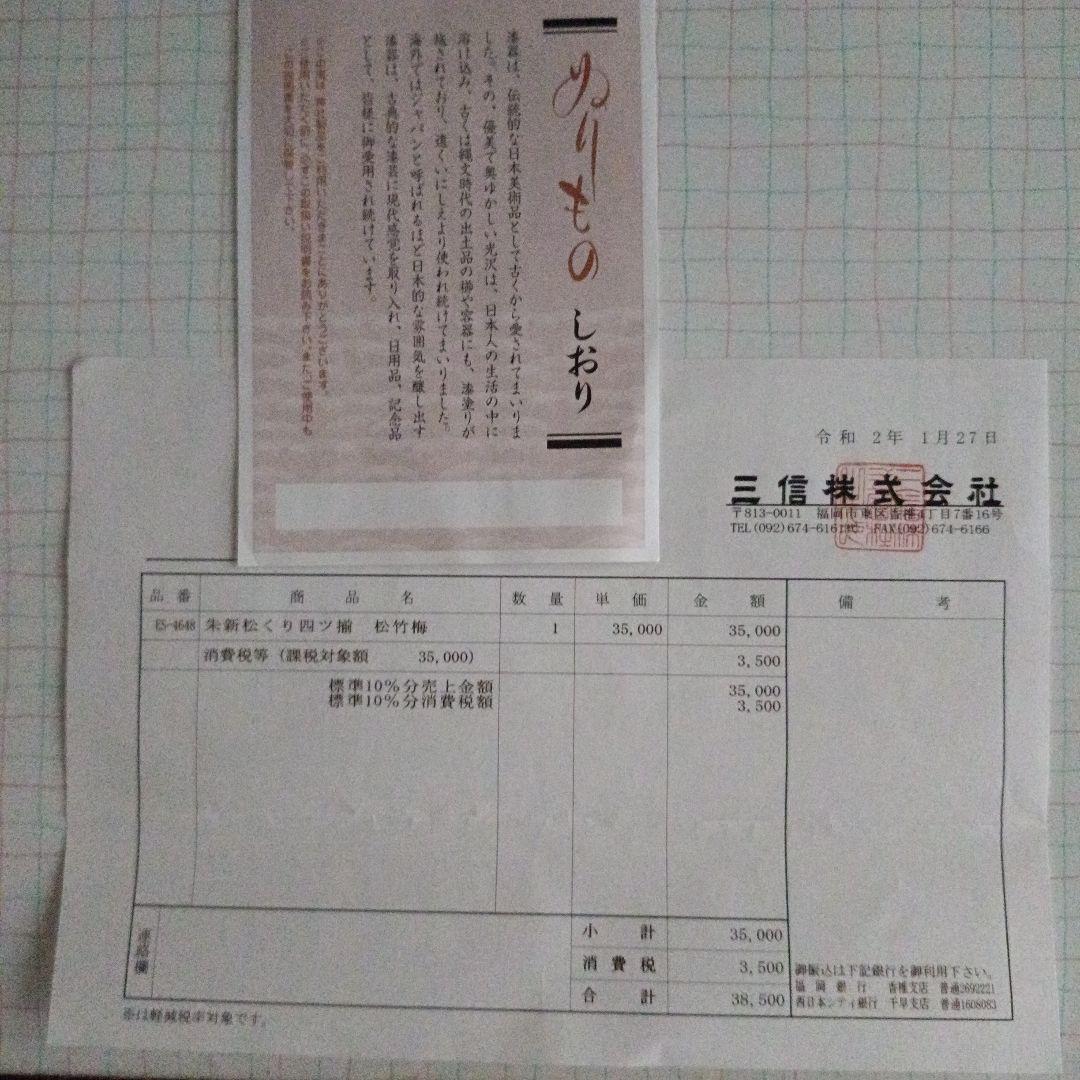 ぬりもの しおり
漆器は、伝統的な日本美術品として古くから愛されてまいりま
した。その、優美で奥ゆかしい光沢は、日本人の生活の中に
溶け込み、古くは縄文時代の出土品の櫛や容器にも、漆塗りが
施されており、遠くいにしえより使われ続けてまいりました。
海外ではジャパンと呼ばれるほど日本的な雰囲気を醸し出す
漆器は、古典的な漆芸に現代感覚を取り入れ、日用品、記念品
として、皆様に御愛用され続けています。
令和 2年 1月27日
三信株式会社
〒813-0011 福岡市東区香椎4丁目7番16号
TEL(092)674-6161㈹ FAX(092)674-6166
品番 商品名 数量 単価 金額 備考
E5-4648 朱新松くり四ツ揃 松竹梅 1 35,000 35,000
消費税等(課税対象額 35,000) 3,500
標準10%分売上金額 35,000
標準10%分消費税額 3,500
連絡欄
小計 35,000
消費税 3,500
合計 38,500
御振込は下記銀行を御利用下さい。
福岡銀行 香椎支店 普通2692221
西日本シティ銀行 千早支店 普通1608083
※は軽減税率対象です。